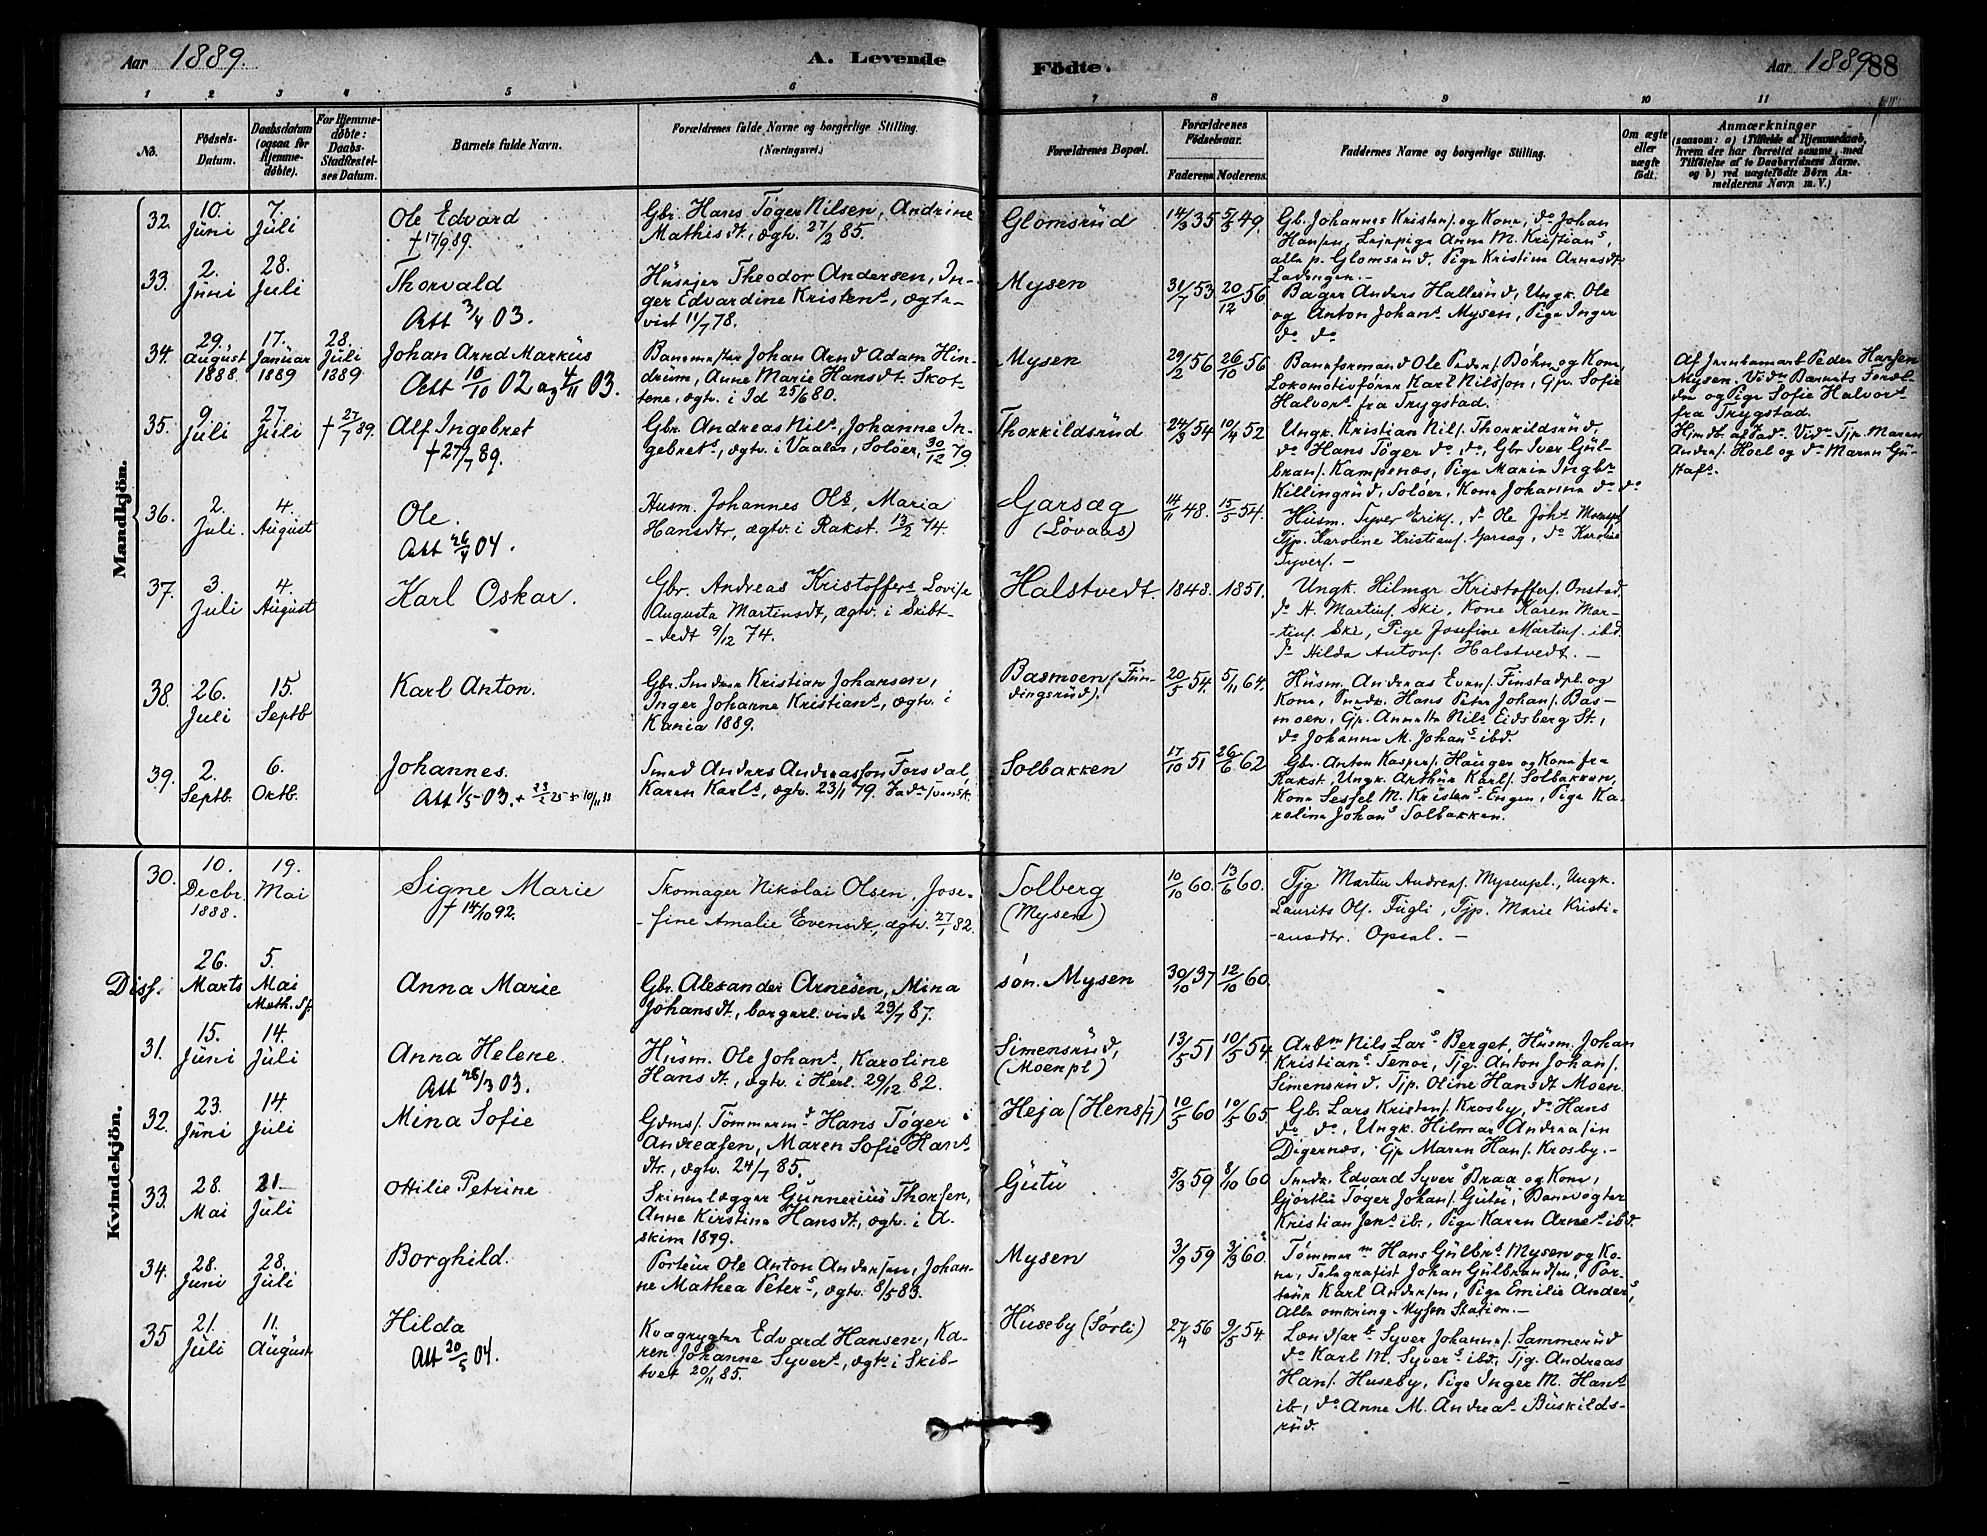 Aar 1889. A. Levende Födte. Aar 1889 88
1 2 3 4 5 6 7 8 9 10 11
No. Födsels-Datum. Daabsdatum (ogsaa for Hjemmedöbte). For Hjemmedöbte: Daabs-Stadfæstelses Datum. Barnets fulde Navn. Forældrenes fulde Navne og borgerlige Stilling. (Næringsvei.) Forældrenes Bopæl. Forældrenes Födselsaar. Faderens Moderens. Faddernes Navne og borgerlige Stilling. Om ægte eller uægte födt. Anmærkninger (saasom: a) i Tilfælde af Hjemmedaab, hvem der har forrettet samme, med Tilföielse af to Daabsvidners Navne, og b) ved uægtefödte Börn Anmelderens Navn m. V.)
Mandkjön.
32. 10. Juni 7. Juli Ole Edvard
† 17/9 89.
Gbr. Hans Töger Nilsen, Andrine
Mathisdt., ægtv. 27/2 85.
Glomsrud 14/3 35 5/5 49.
Gb. Johannes Kristens. og Kone, do Johan
Hansen, Leiepige Anna M. Kristians,
alle p. Glomsrud, Pige Kristine Arnesdt.
33. 2. Juni 28. Juli Thorvald
Att 3/4 03.
Husejer Theodor Andersen, In-
ger Edvardine Kristens., ægte-
viet 11/7 78.
Mysen 31/7 53 20/12 56
Bager Anders Hallerud, Ungk. Ole
og Anton Johans. Mysen, Pige Inger
do do
34. 29. August 1888. 17. Januar 1889 28. Juli 1889 Johan Arnd Markus
Att 10/10 02 og 4/11 03.
Banemester Johan Arnd Adam Hin-
drum, Anne Marie Hansdt. Skot-
tene, ægtv. i Id 25/6 80.
Mysen 29/2 56 26/10 56
Baneformand Ole Peders. Böhn og Kone,
Lokomotivförer Karl Nilsson, Gjp. Sofie
Halvors. fra Trygstad.
Af Jernbanearb. Peder Hansen
Mysen. Vidn. Barnets Foræl-
dre og Pige Sofie Halvors.
fra Trygstad.
35. 9 Juli 27. Juli † 27/7 89. Alf Ingebret
† 27/7 89.
Gbr. Andreas Nils., Johanne In-
gebrets., ægtv. i Vaaler, Solöer, 30/12 79
Thorkildsrud 24/3 54 10/4 52
Ungk. Kristian Nils. Thorkildsrud,
do Hans Töger do do, Gbr Iver Gul-
brans. Kampenæs, Pige Marie Ingbr.
Killingrud, Solöer, Kone Johanne do do
Hjmdb. af Jord. Vidn. Tjp. Maren
Andrs. Hoel og do Maren Gu-
stafs.
36. 2. Juli. 4. August Ole.
Att 26/4 04.
Husm. Johannes Ols., Maria
Hansdtr, ægtv. i Rakst. 13/2 74.
Garsæg
(Lövaas)
14/11 48. 15/5 54.
Husm. Syver Eriks., do Ole Johs. Moenspl.
Tjp. Karoline Kristians. Garsæg, do Karoline
Syvers. —
37. 3. Juli 4. August Karl Oskar.
Gbr. Andreas Kristoffers. Lovise
Augusta Martinsdt, ægtv. i Skibt-
-vedt 9/12 74.
Halstvedt. 1848. 1851.
Ungk. Hilmar Kristoffers. Onstad,
do H. Martins. Ski, Kone Karen Mar-
-tins. Ski, Pige Josefine Martins. ibd.
do Hilda Antons. Halstvedt. —
38. 26. Juli 15. Septb Karl Anton.
Gbr. Snedker Kristian Johansen,
Inger Johanne Kristians., ægtv. i
Krania 1889.
Basmoen (Fun-
dingsrud). 20/5 54. 5/11 64.
Husm. Andreas Evens. Finstadpl. og
Kone, Snedk. Hans Peter Johans. Bas-
moen, Gjp. Annette Nils. Eidsberg St.,
do Johanne M. Johans. ibd.
39. 2. Septb. 6. Oktb. Johannes.
Att 1/5 03. + 23/2 25 + 10/11 33
Smed Anders Andreasson Forsdal,
Karen Karls., ægtv. 23/1 79. Fadr. svensk.
Solbakken 17/10 51 26/6 62
Gbr. Anton Kaspers. Haugen og Kone fra
Rakst., Ungk. Arthur Karls. Solbakken,
Kone Sessel M. Kristens. Engen, Pige Ka-
roline Johans. Solbakken.
Kvindekjön.
30. 10. Decbr. 1888. 19. Mai Signe Marie
† 14/10 92.
Skomager Nikolai Olsen, Jose-
-fine Amalie Evensdt., ægtv. 27/1 82.
Solberg
(Mysen)
10/10 60. 13/6 60.
Tjg. Martin Andreas. Mysenpl., Ungk.
Laurits Ols. Fugli, Tjp. Marie Kristi-
-ansdtr. Opsal. —
Diss. 26. Marts 5. Mai Meth. Sf. Anna Marie
Gbr. Alexander Arnesen, Mina
Johansdt., borgerl. viede 29/7 87.
søn. Mysen 30/10 37 12/10 60.
31. 15. Juni 14. Juli Anna Helene.
Att 26/3 03.
Husm. Ole Johans., Karoline
Hansdt., ægtv. i Herl. 29/12 82.
Simensrud,
(Moenpl)
13/5 51 10/5 54
Arbm Nils Lars. Berget, Husm. Johan
Kristians. Tenor, Tjg. Anton Johans.
Simensrud, Tjp. Oline Hansdt. Moen.
32. 23. Juni 14. Juli Mina Sofie
Gdms. Tömmerm. Hans Töger
Andreassen, Maren Sofie Hans-
dtr., ægtv. 24/7 85.
Heja (Hensf) 10/5 60 10/5 65
Gb. Lars Kristens. Krosby, do Hans
do do, Ungk. Hilmar Andreassen
Digernæs, Gjp Maren Hans. Krosby. —
33. 28. Mai 21. Juli Ottilie Petrine
Skinnelægger Gunnerius Thorsen,
Anne Kirstine Hansdt., ægtv. i A-
skim 1879.
Gutu 5/3 59 8/10 60
Snedk. Edvard Syvers. Braa og Kone,
Gjörtler Töger Johans. Gutu, Banevogter
Kristian Jens. ib., Pige Karen Arnes. ibd.
34. 28. Juni 28. Juli Borghild.
Portör Ole Anton Andersen, Johan-
ne Mathea Peters., ægtv. 8/5 83.
Mysen 3/9 59 3/3 60.
Tömmerm. Hans Gulbrs. Mysen og Ko-
ne, Telegrafist Johan Gulbrandsen, Por-
tör Karl Andersen, Pige Emilie Anders.,
Alle omkring Mysen Station. —
35 21. Juli 11. August Hilda
Att 20/5 04.
Kvægrygter Edvard Hansen, Ka-
ren Johanne Syvers., ægtv. i Skib-
tvet 20/11 85.
Huseby (Sörli) 27/4 56 9/5 54.
Landsarb. Syver Johanns. Sammerud
do Karl M. Syvers. ibd. Tjg. Andreas
Hans. Huseby, Pige Inger M. Hans.
ib., do Anne M. Andreas. Buskilds-
rud.